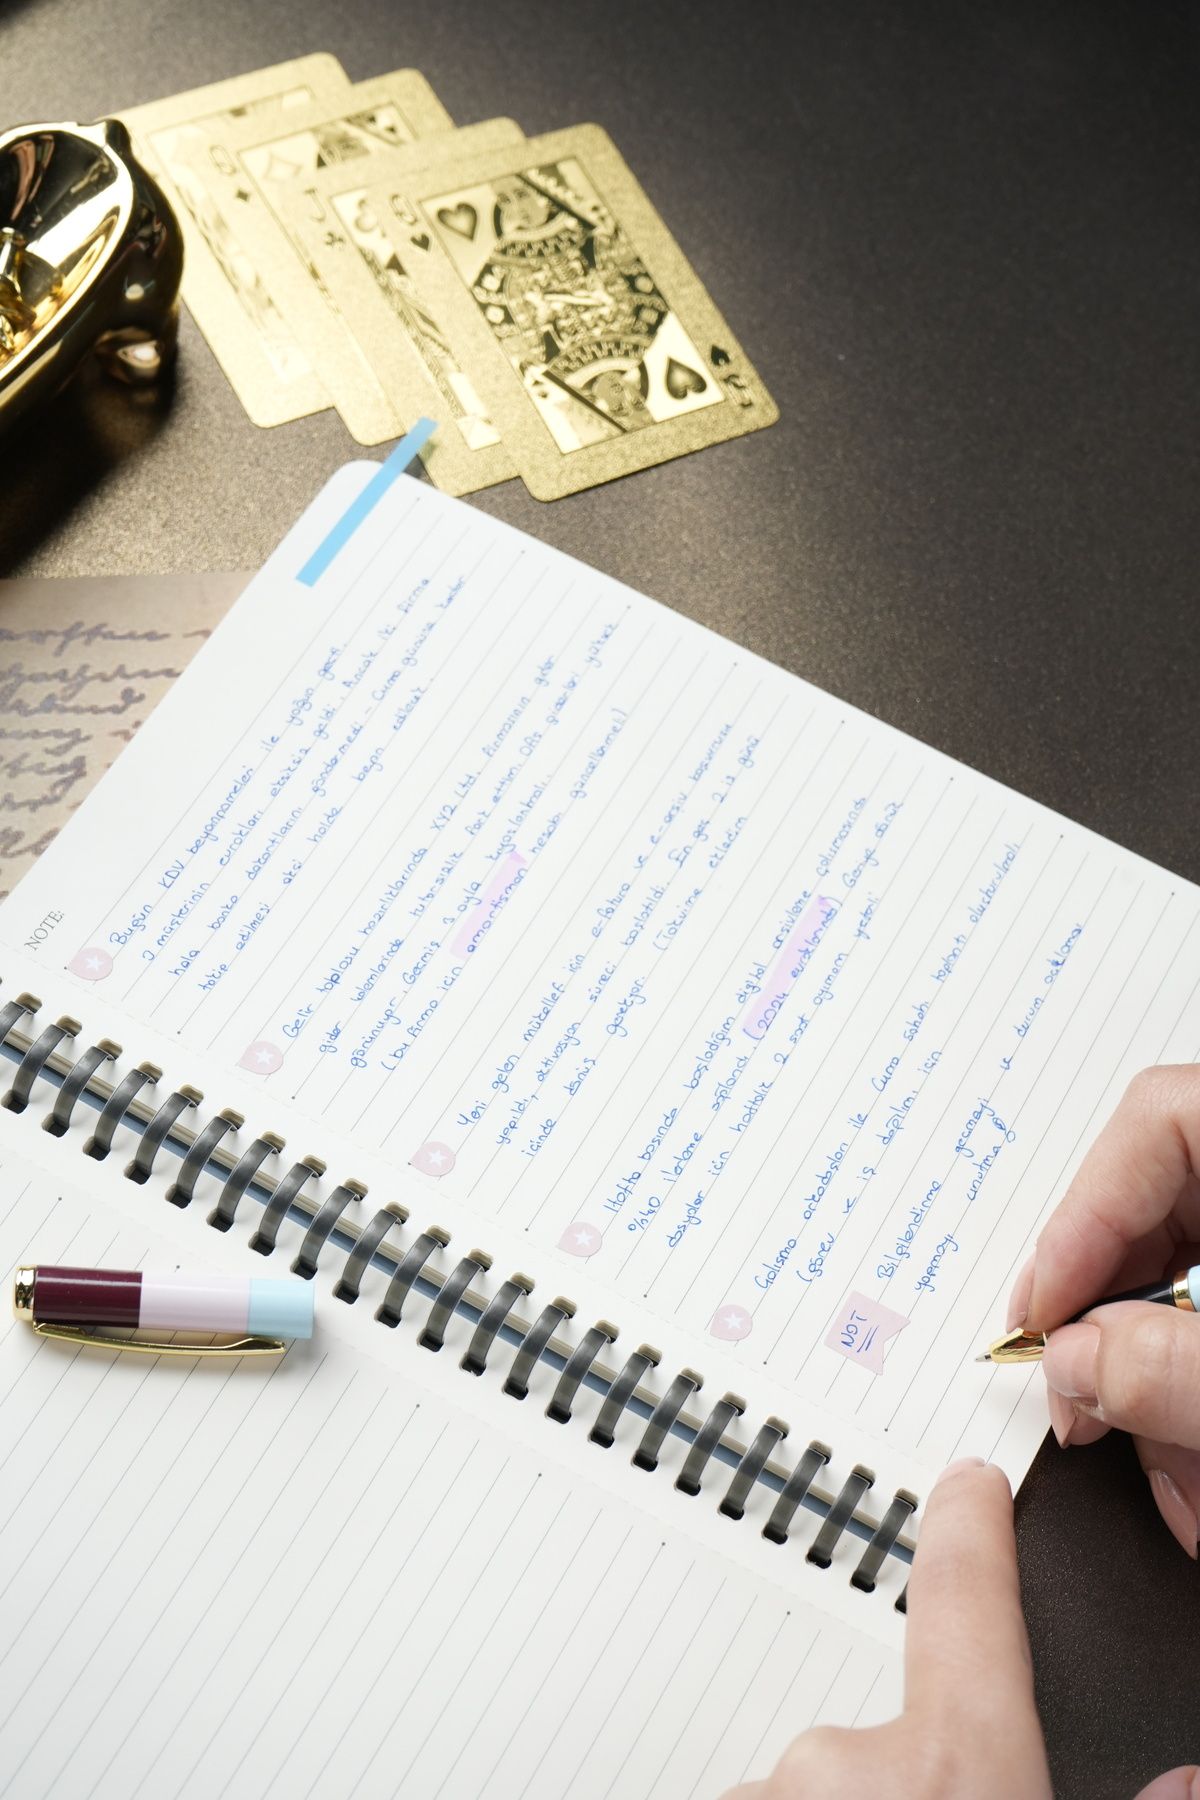 NOTE:
Bugün KDV beyannameleri ile yoğun geçti.
3 müşterinin evrakları eksiksiz geldi. Ancak iki firma
hala banka dekontlarını göndermedi - Cuma gününe kadar
takip edilmesi aksi halde beyan edilecek.
Gelir toplosu hazırlıklarında XYZ Ltd. firmasının gider
gider kalemlerinde tutarsızlık fark ettim. Ofis giderleri yüksek
görünüyor. Geçmiş 3 ayla kıyaslanmalı.
(bu firma için amortisman hesabı güncellenmeli)
Yeni gelen mükellef için e-fatura ve e-arşiv başvurusu
yapıldı, aktivasyon süreci başlatıldı. En geç 2 iş günü
içinde dönüş gerekiyor. (Takvime ekledim
Hafta başında başladığım dijital arşivleme çalışmasında
%40 ilerleme sağlandı (2024 evraklarında) Geriye dönük
dosyalar için haftalık 2 saat ayırmam yeterli
Çalışma arkadaşları ile Cuma sabahı toplantı oluşturulmalı
(görev ve iş dağılımı için
NOT
Bilgilendirme geçmeyi ve durum açıklaması
yapmayı unutma
Q
J
Q